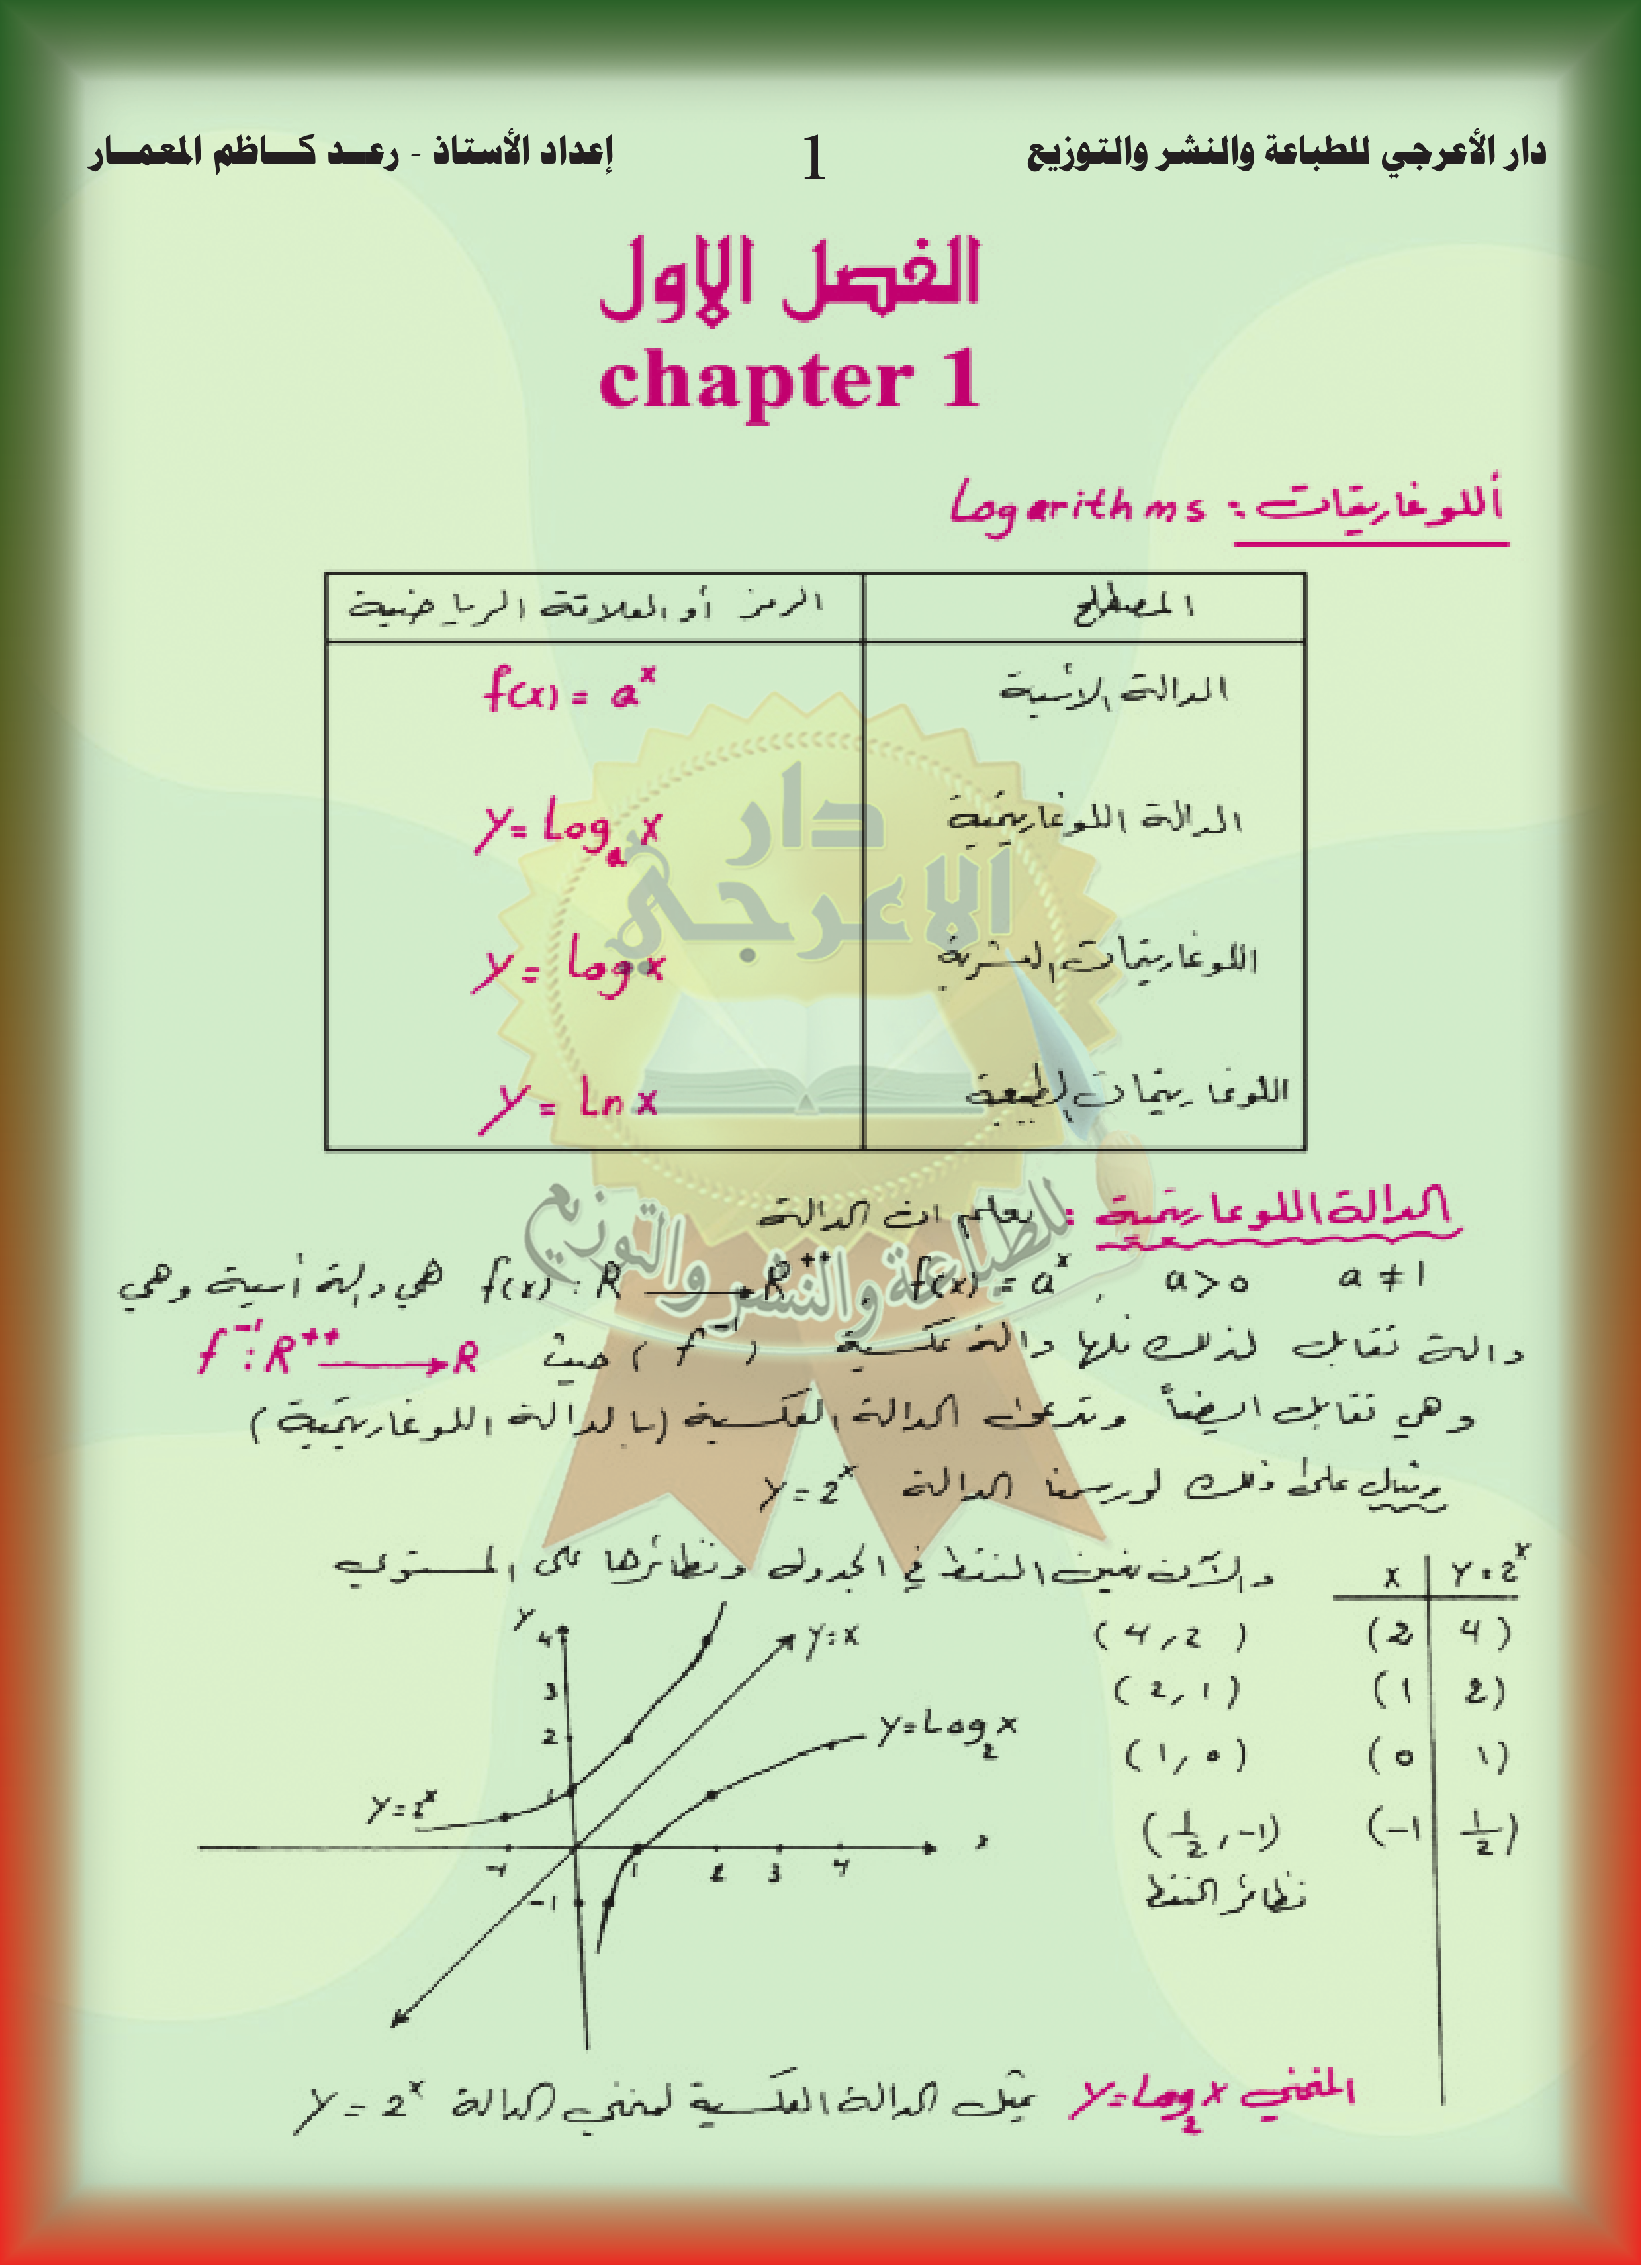 دار الأعرجي للطباعة والنشر والتوزيع 1 إعداد الأستاذ - رعـد كـاظم المعمـار
الفصل الاول
chapter 1
أللوغاريقات : Logarithms
المصطلح الرمز أو العلاقة الرياضية
الدالة الأسية f(x) = a^x
الدالة اللوغاريتمية y = Log_a x
اللوغاريتمات العشرية y = Log x
اللوغاريتمات الطبيعية y = Ln x
دار
الاعرجي
للطباعة والنشر والتوزيع
الدالة اللوغاريتمية : نعلم ان الدالة
f(x) : R → R^++ , f(x) = a^x , a > 0 a ≠ 1 هي دالة أسية وهي
دالة تقابل لذلك فلها دالة عكسية (f^-1) حيث f^-1 : R^++ → R
وهي تقابل ايضاً وتدعى الدالة العكسية (بالدالة اللوغاريتمية)
ومثال على ذلك لو رسمنا الدالة y = 2^x
والآن نعين النقط في الجدول ونظائرها على المستوي
x y = 2^x
(2 4) (4 , 2)
(1 2) (2 , 1)
(0 1) (1 , 0)
(-1 1/2) (1/2 , -1)
نظائر النقط
y
4
3
2
1
-1
-1 1 2 3 4 x
y = x
y = Log_2 x
y = 2^x
المنحني y = Log_2 x يمثل الدالة العكسية لمنحني الدالة y = 2^x